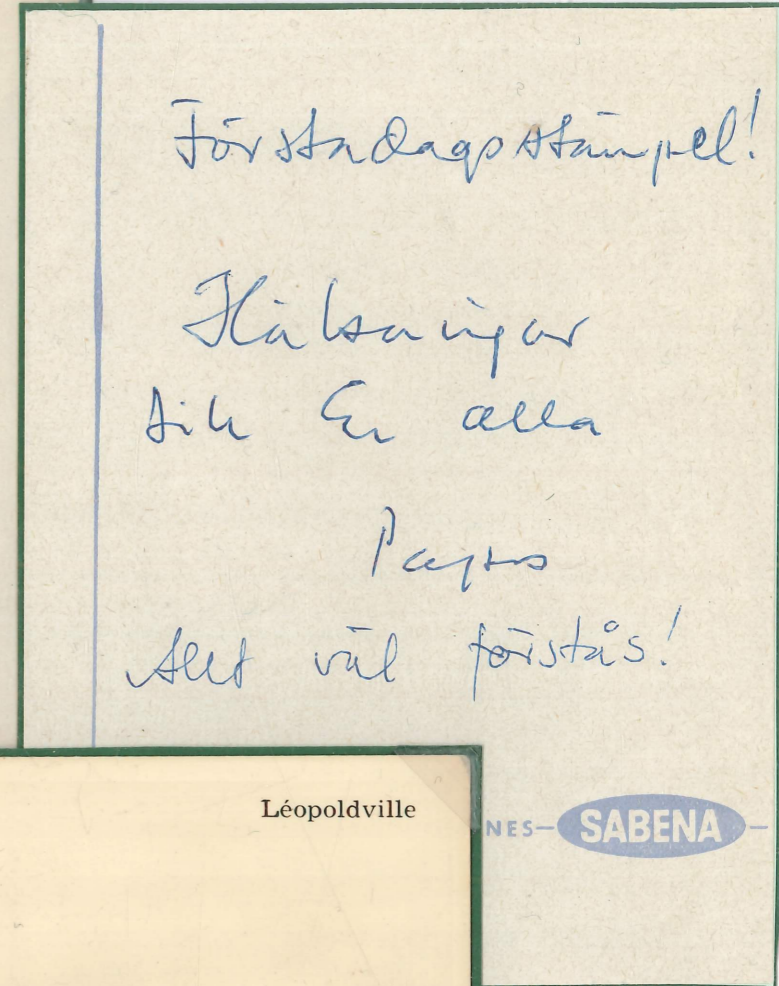 Förstadagsstämpel!
Hälsningar
till Er alla
Pappa
Allt väl förstås!
Léopoldville
NES– SABENA –